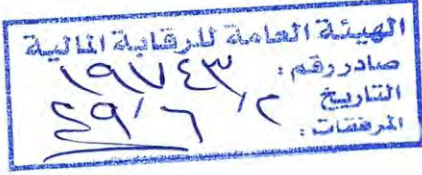 الهيئة العامة للرقابة المالية
صادر رقم : ١٩٧٤٣
التاريخ ٢ / ٦ /
المرفقات :